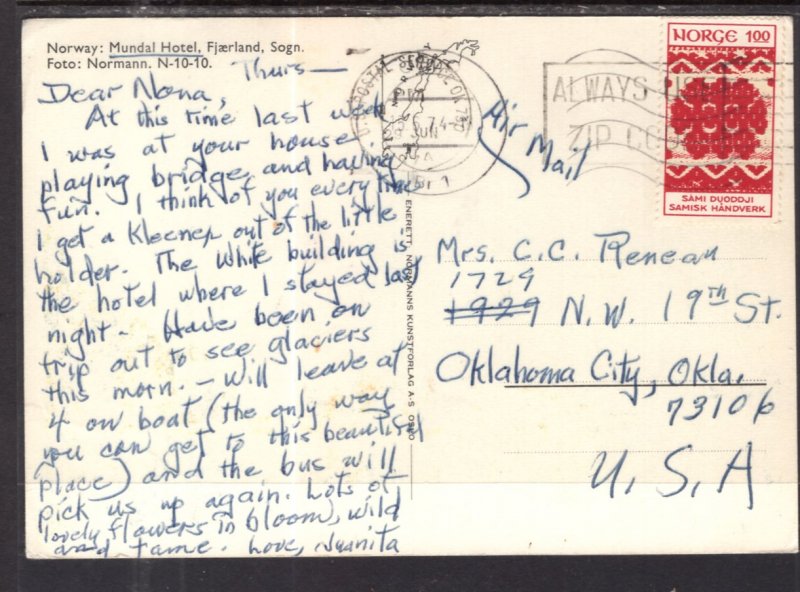 Norway: Mundal Hotel, Fjærland, Sogn.
Foto: Normann. N-10-10.
Thurs—
Dear Nona,
At this time last week
I was at your house
playing bridge and having
fun. I think of you every time
I get a Kleenex out of the little
holder. The white building is
the hotel where I stayed last
night. Have been on
trip out to see glaciers
this morn. - Will leave at
4 on boat (the only way
you can get to this beautiful
place) and the bus will
pick us up again. Lots of
lovely flowers in bloom, wild
and tame. Love, Juanita
ENERETT, NORMANNS KUNSTFORLAG A-S OSLO
U.S. POSTAL SERVICE OK 731
PM
JUN
ALWAYS USE
ZIP CODE
NORGE 100
SAMI DUODDJI
SAMISK HÅNDVERK
Air Mail
Mrs. C.C. Reneau
1729
1929 N.W. 19th St.
Oklahoma City, Okla.
73106
U.S.A